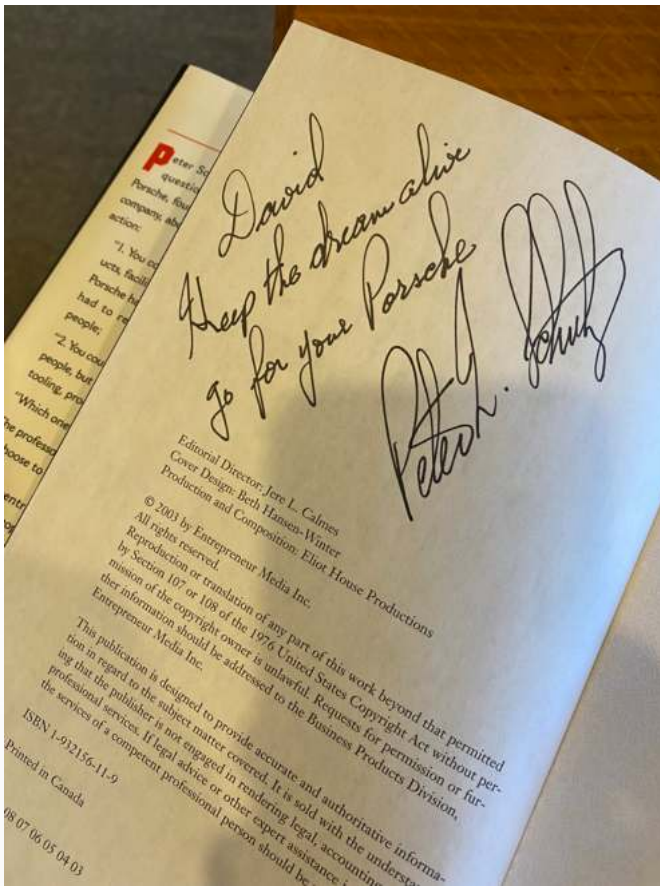 Peter Sc
questio
Porsche, four
company, abo
action:
"1. You co
ucts, facili
Porsche ha
had to re
people;
"2. You cou
people, but
tooling, pro
"Which one
he professo
hoose to
entr
David
Keep the dream alive
go for your Porsche
Peter L. Schutz
Editorial Director: Jere L. Calmes
Cover Design: Beth Hansen-Winter
Production and Composition: Eliot House Productions
© 2003 by Entrepreneur Media Inc.
All rights reserved.
Reproduction or translation of any part of this work beyond that permitted
by Section 107 or 108 of the 1976 United States Copyright Act without per-
mission of the copyright owner is unlawful. Requests for permission or fur-
ther information should be addressed to the Business Products Division,
Entrepreneur Media Inc.
This publication is designed to provide accurate and authoritative informa-
tion in regard to the subject matter covered. It is sold with the understa
ing that the publisher is not engaged in rendering legal, accounting
professional services. If legal advice or other expert assistance i
the services of a competent professional person should be
ISBN 1-932156-11-9
Printed in Canada
08 07 06 05 04 03